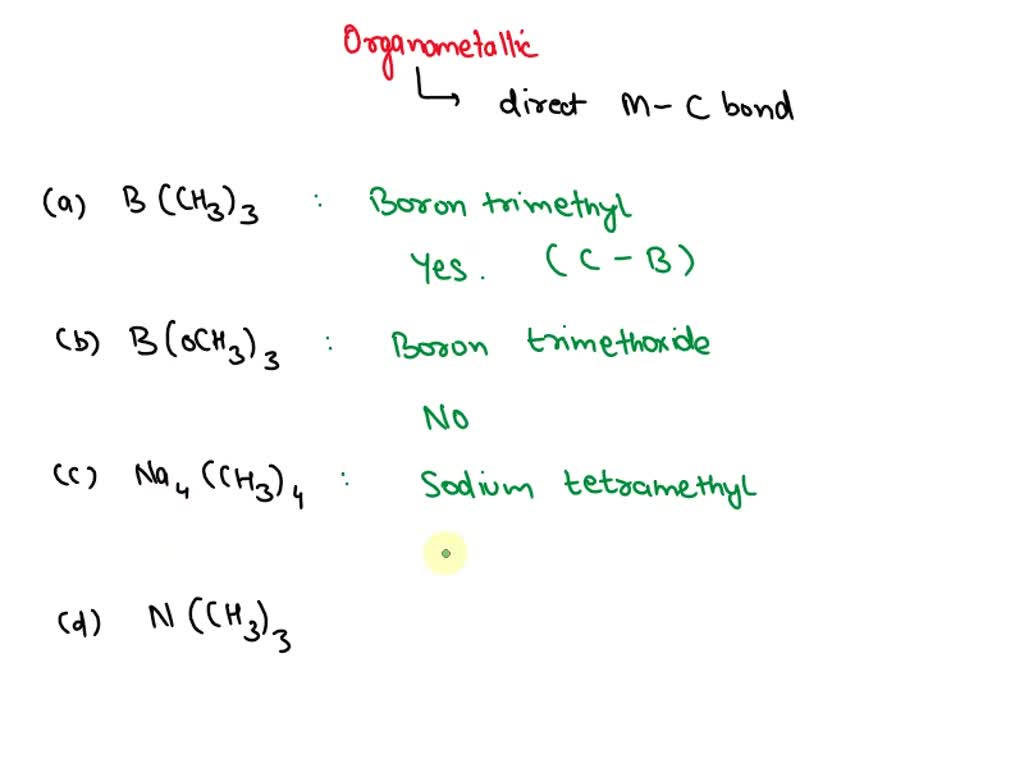 Organometallic
direct M-C bond
(a) B(CH₃)₃ : Boron trimethyl
Yes. (C-B)
(b) B(OCH₃)₃ : Boron trimethoxide
No
(c) Na₄(CH₃)₄ : Sodium tetramethyl
(d) N(CH₃)₃